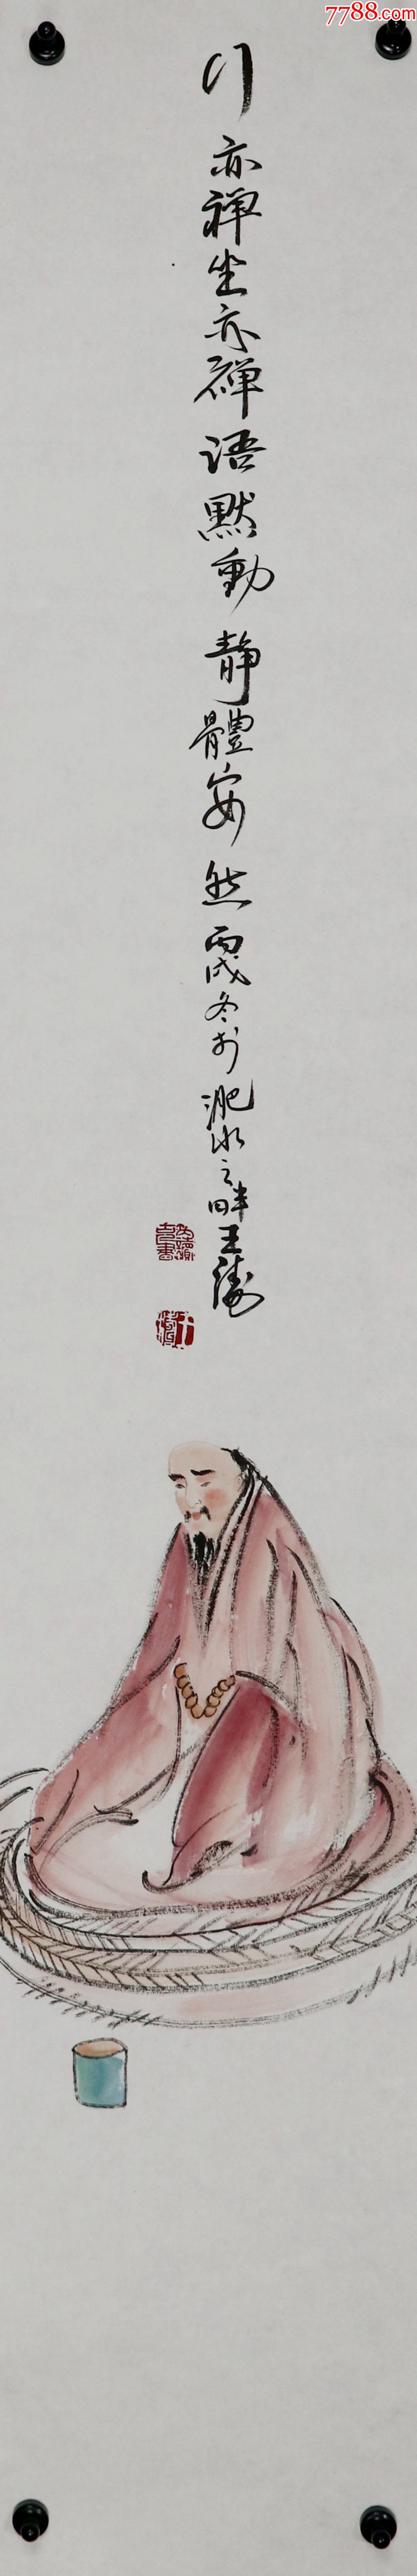 7788.com
行亦禅坐亦禅语默動静體安然丙戌冬於淝水之畔王涛